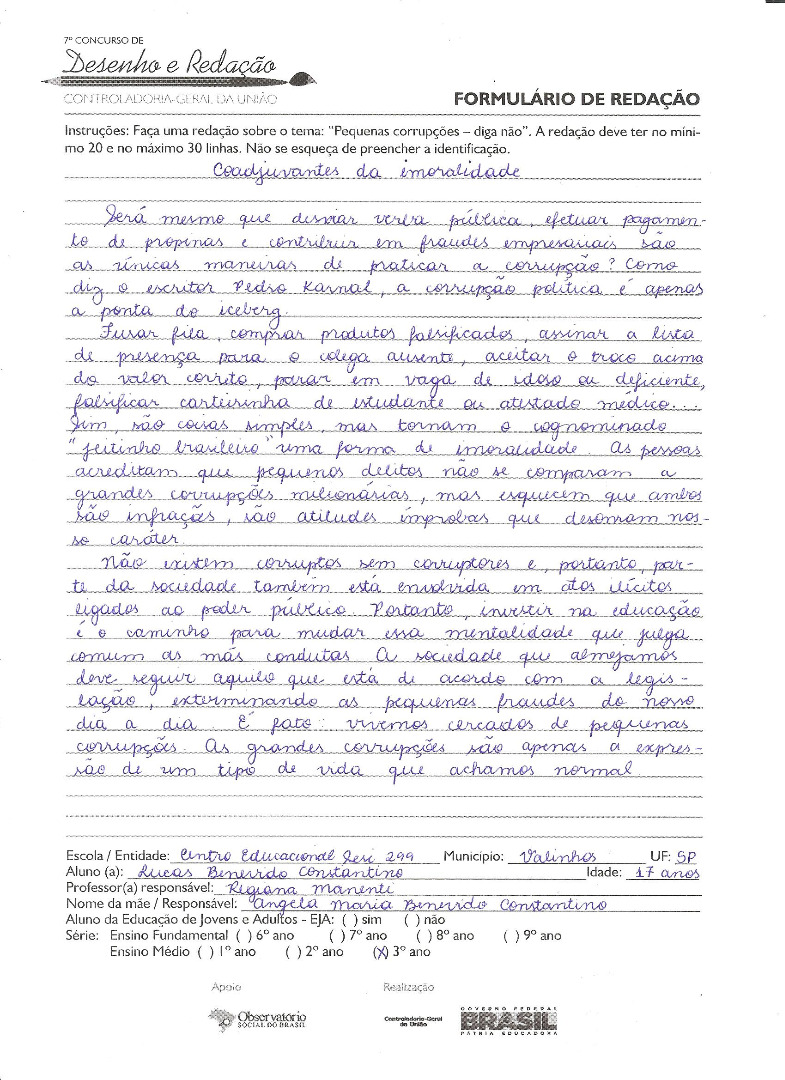 7º CONCURSO DE
Desenho e Redação
CONTROLADORIA-GERAL DA UNIÃO
FORMULÁRIO DE REDAÇÃO
Instruções: Faça uma redação sobre o tema: "Pequenas corrupções – diga não". A redação deve ter no míni-
mo 20 e no máximo 30 linhas. Não se esqueça de preencher a identificação.
Coadjuvantes da imoralidade
Será mesmo que desviar verba pública, efetuar pagamen-
to de propinas e contribuir em fraudes empresariais são
as únicas maneiras de praticar a corrupção? Como
diz o escritor Pedro Karnal, a corrupção política é apenas
a ponta do iceberg.
Furar fila, comprar produtos falsificados, assinar a lista
de presença para o colega ausente, aceitar o troco acima
do valor correto, parar em vaga de idoso ou deficiente,
falsificar carteirinha de estudante ou atestado médico...
Sim, são coisas simples, mas tornam o cognominado
"jeitinho brasileiro" uma forma de imoralidade. As pessoas
acreditam que pequenos delitos não se comparam a
grandes corrupções milionárias, mas esquecem que ambos
são infrações, são atitudes ímprobas que desonram nos-
so caráter.
Não existem corruptos sem corruptores e, portanto, par-
te da sociedade também está envolvida em atos ilícitos
ligados ao poder público. Portanto, investir na educação
é o caminho para mudar essa mentalidade que julga
comum as más condutas. A sociedade que almejamos
deve seguir aquilo que está de acordo com a legis-
lação, exterminando as pequenas fraudes do nosso
dia a dia. É fato: vivemos cercados de pequenas
corrupções. As grandes corrupções são apenas a expres-
são de um tipo de vida que achamos normal.
Escola / Entidade: Centro Educacional Sesi 299 Município: Valinhos UF: SP
Aluno (a): Lucas Benevido Constantino Idade: 17 anos
Professor(a) responsável: Regiana Manenti
Nome da mãe / Responsável: Angela Maria Benevido Constantino
Aluno da Educação de Jovens e Adultos - EJA: ( ) sim ( ) não
Série: Ensino Fundamental ( ) 6º ano ( ) 7º ano ( ) 8º ano ( ) 9º ano
Ensino Médio ( ) 1º ano ( ) 2º ano (X) 3º ano
Apoio Realização
Observatório
SOCIAL DO BRASIL
Controladoria-Geral
da União
GOVERNO FEDERAL
BRASIL
PÁTRIA EDUCADORA